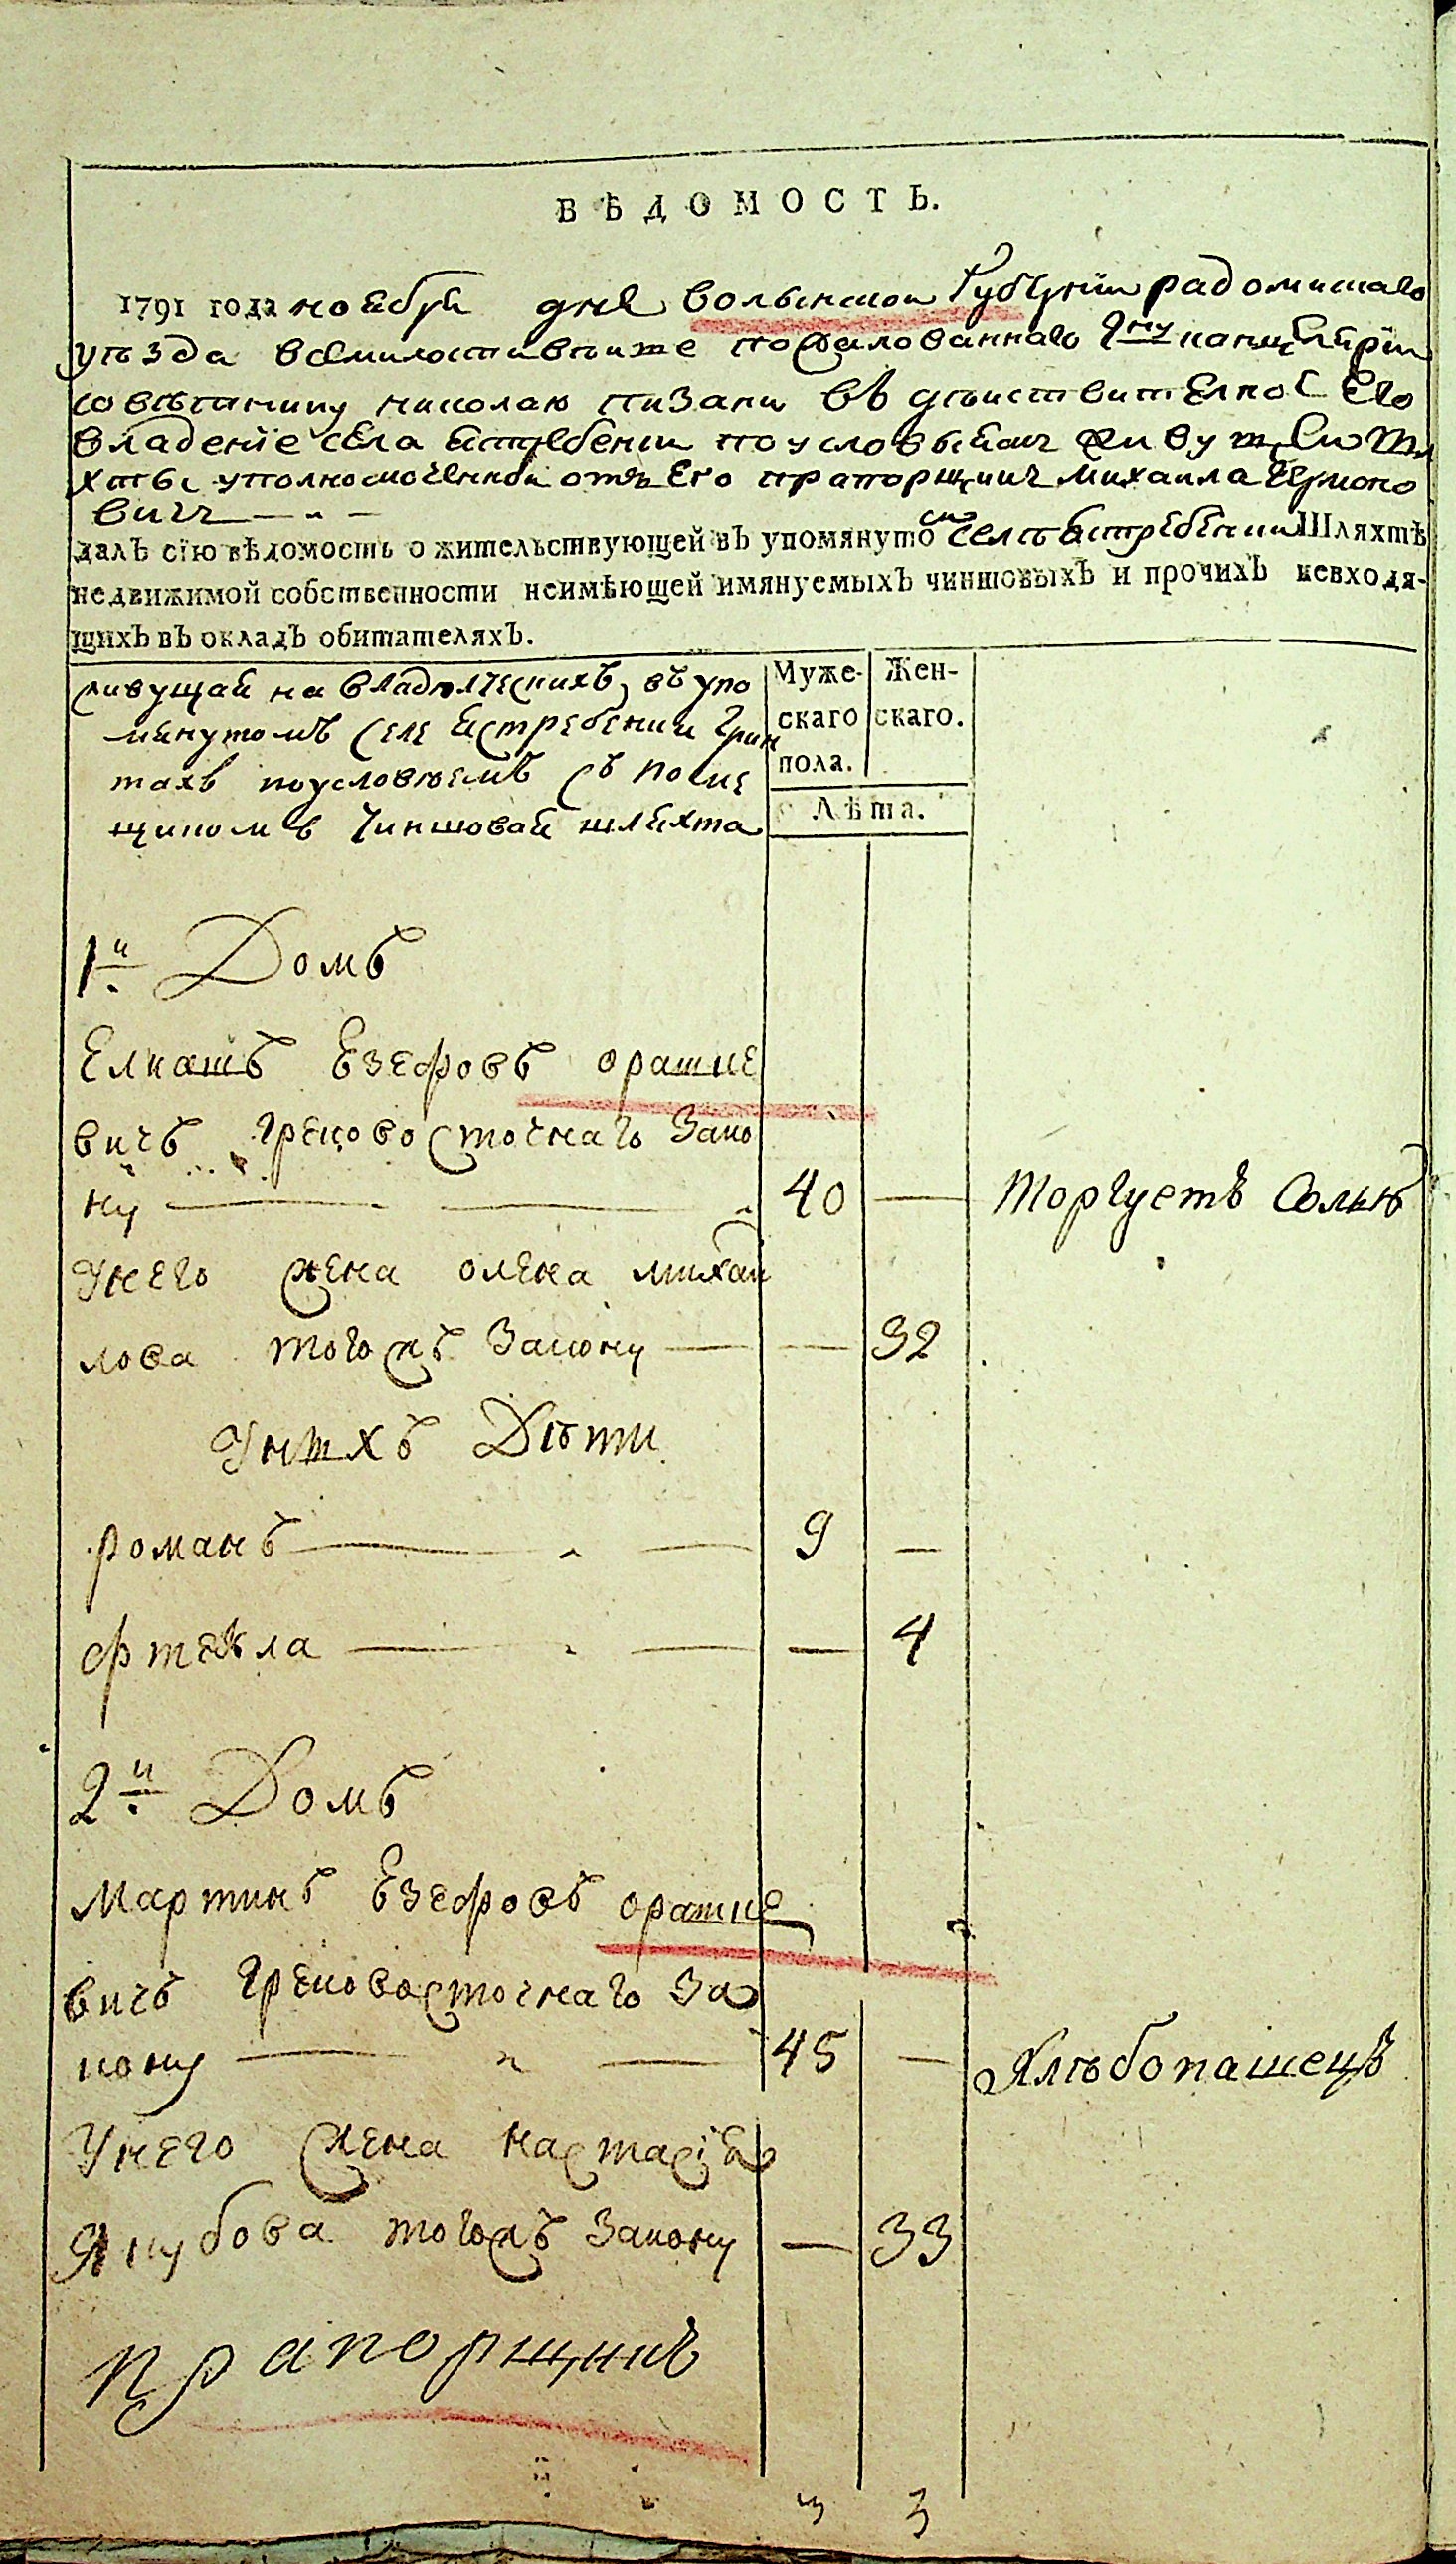 ВѢДОМОСТЬ.
1791 года ноября дня волынской губернии радомисшаго
уѣзда всемилостивѣише пожалованнаго канцелярии
совѣтнику николаю пизани въ дѣиствителное его
владение села ястребенки по условиямъ живущеи шля
хты уполномоченной отъ его прапорщикъ михаила
вичъ
далъ сїю вѣдомость о жительствующей въ упомянутомъ селѣ ястребенки Шляхтѣ
недвижимой собственности неимѣющей имянуемыхъ чиншовыхъ и прочихъ невходя-
щихъ въ окладъ обитателяхъ.
живущай на владѣлческихъ въ упо
мянутомъ селе ястребенки грун
тахъ поусловиемъ съ поме
щикомъ чиншовая шляхта
Муже-
скаго
пола.
Жен-
скаго.
Лѣта.
1й Домъ
Елиашъ Езефовъ орашке
вичъ грековосточнаго зако
ну — 40 — торгуетъ солью
унего жена олена михаи
лова тогожъ закону — — 32
унихъ Дѣти
романъ — 9 —
фтекла — — 4
2й Домъ
Мартинъ Езефовъ орашке
вичъ грековосточнаго за
кону — 45 — хлѣбопашецъ
унего жена настасїя
Якубова тогожъ закону — 33
прапорщикъ
3 3